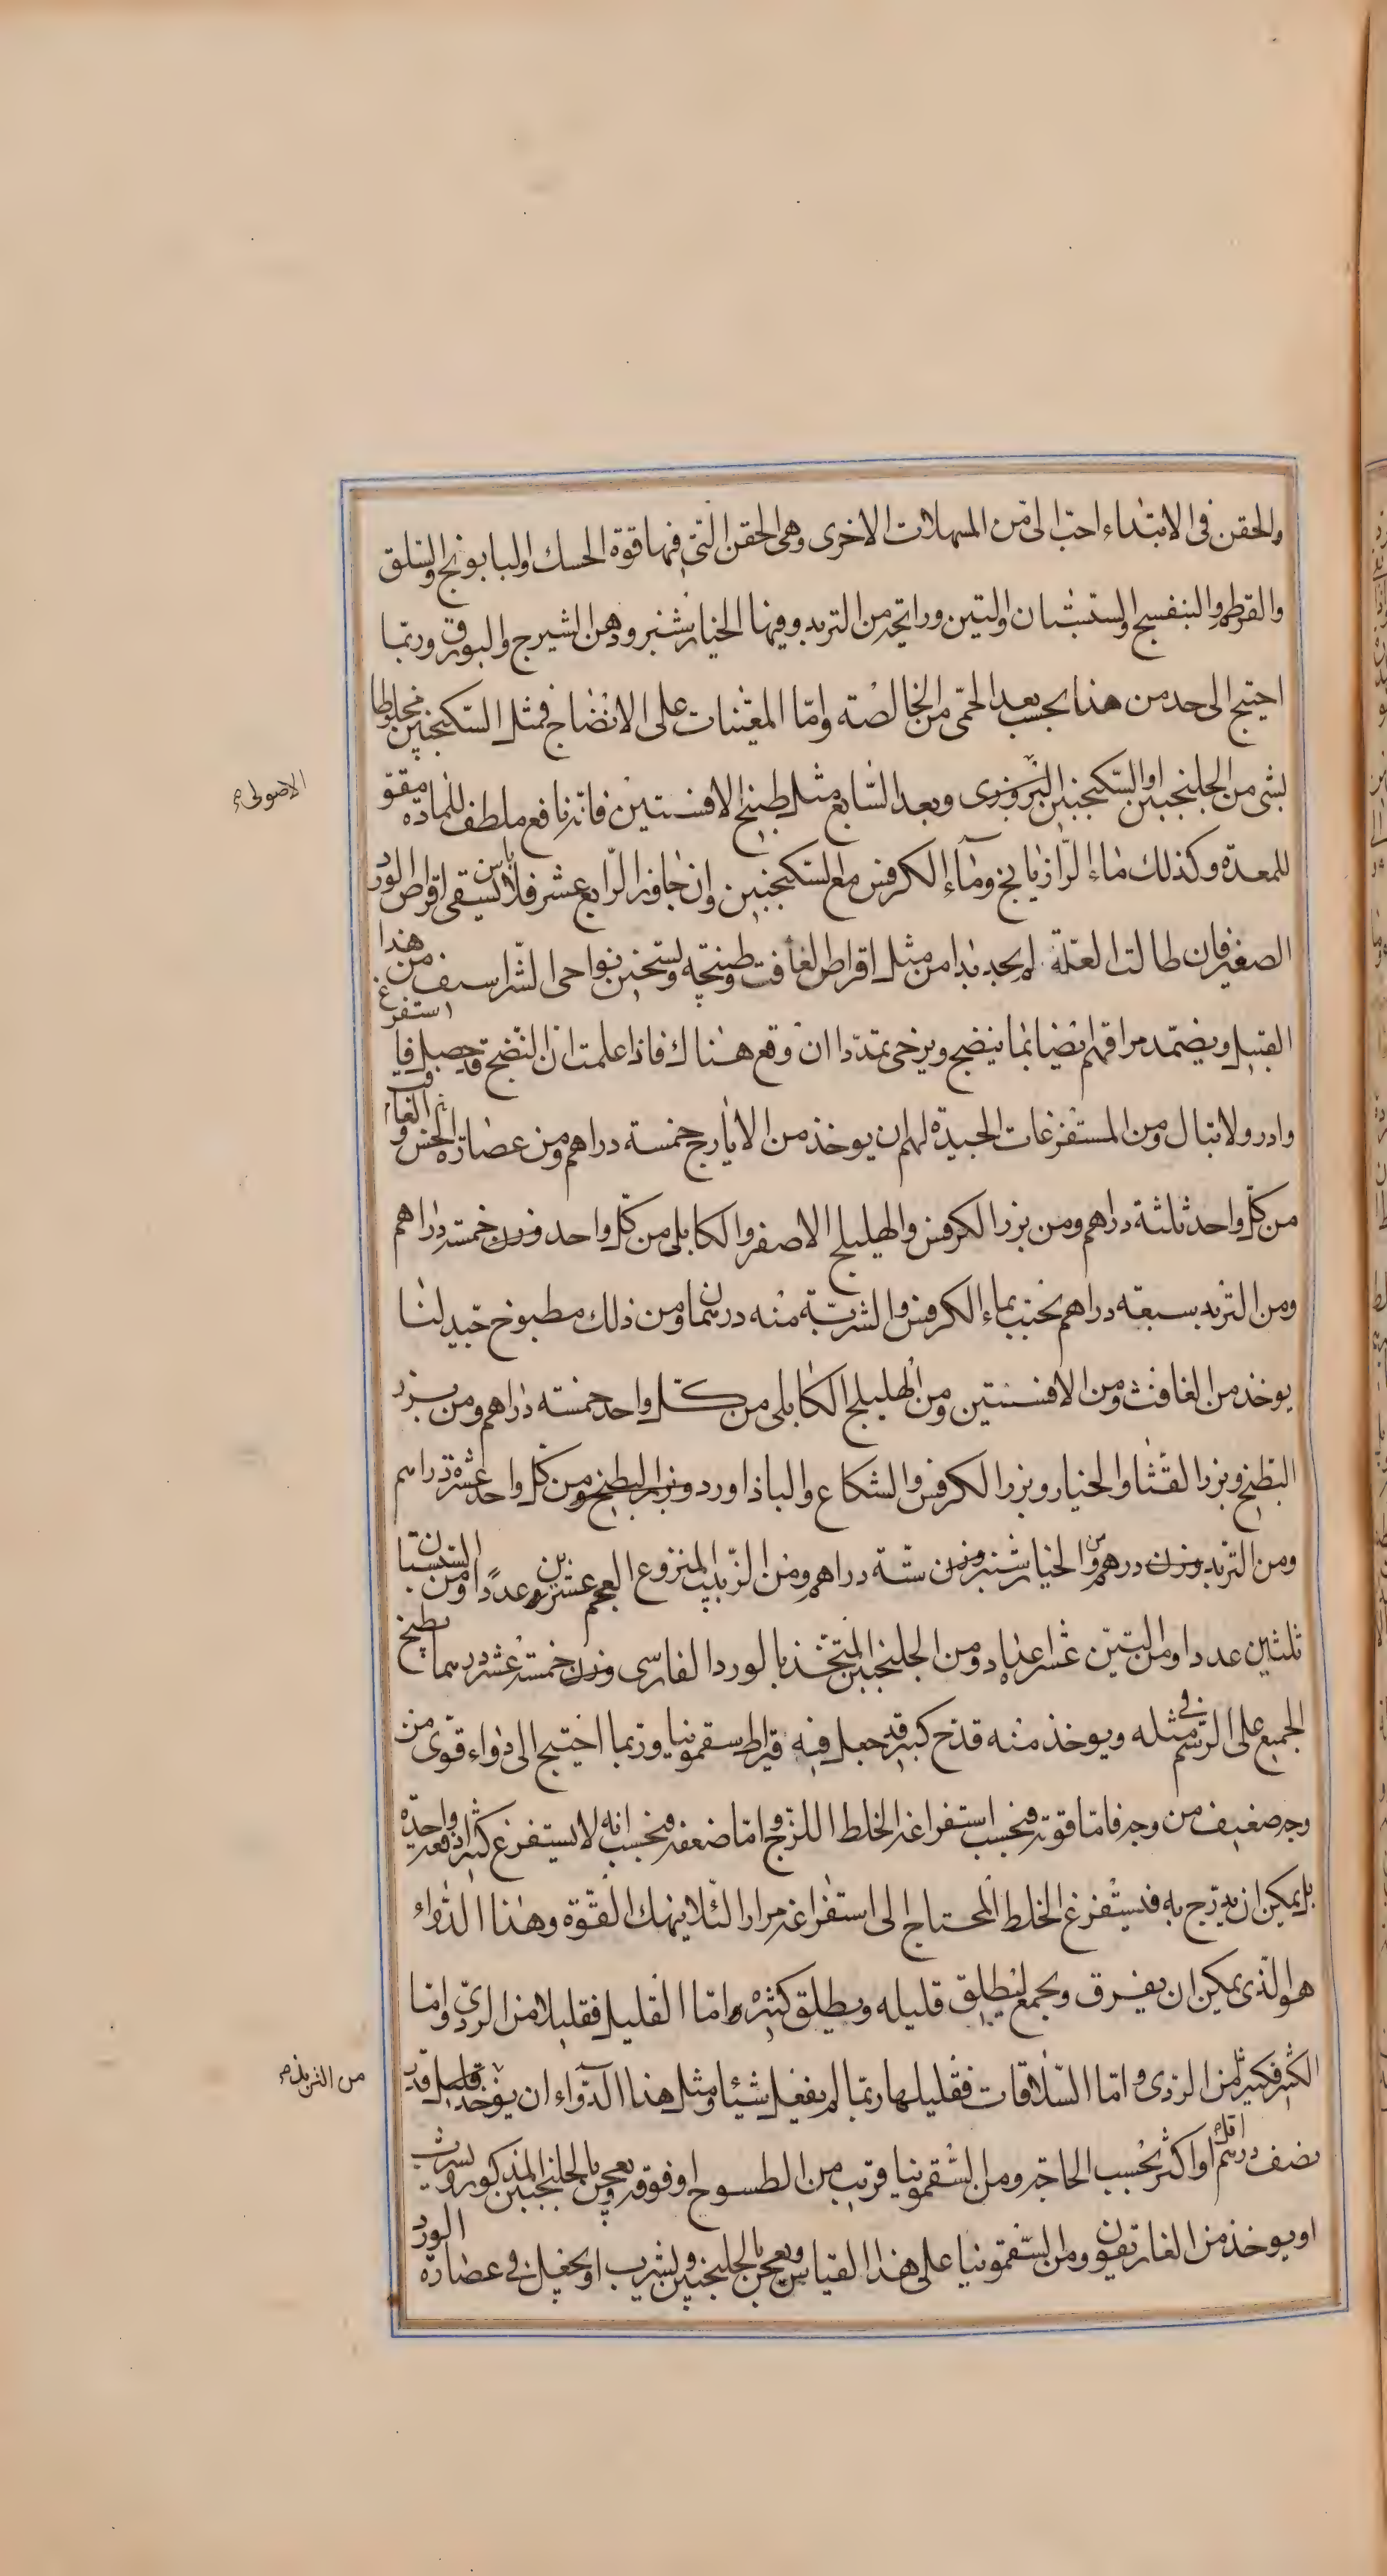 والحقن فى الابتداء احبّ الىّ من المسهلات الاخرى وهى الحقن الّتى فيها قوّة الحسك والبابونج والسّلق
والقرطم والبنفسج والسّبستان والتين وراتحة من التربد وفيها الخيار شنبر ودهن الشيرج والبورق وربّما
احتيج الى حد من هذا بحسب بعد الحمّى من الخالصة وامّا المعيّنات على الانضاج فمثل السّكنجبين مخلوطا
بشى من الجلنجبين او السّكنجبين البزورى وبعد السّابع مثل طبيخ الافسنتين فانّه نافع ملطف للمادّة مقوّ
الاصولى
للمعدة وكذلك ماء الرّازيانج وماء الكرفس مع السّكنجبين وان جاوز الرّابع عشر فلا باس بسقى اقراص الورد
الصغير فان طالت العلّة لم يجد بدا من مثل اقراص الغافت وطبيخه وتسخين نواحى الشّراسيف من هذا
القبيل ويضمّد مراقهم ايضا بما ينضج ويرخى تمدّدا ان وقع هناك فاذا علمت ان النّضج قد حصل فاستفرغ
وادر ولا تبال ومن المستفرغات الجيدة لهم ان يوخذ من الايارج خمسة دراهم ومن عصارة الخس والغافت
من كلّ واحد ثلثة دراهم ومن بزر الكرفس والهليلج الاصفر والكابلى من كلّ واحد وزن خمسة دراهم
ومن التربد سبعة دراهم يحبّب بماء الكرفس والشربة منه درهمان ومن ذلك مطبوخ جيّد لنا
يوخذ من الغافث ومن الافسنتين ومن الهليلج الكابلى من كلّ واحد خمسة دراهم ومن بزر
البطيخ وبزر القثا والخيار وبزر الكرفس والشكاع والباذاورد وبزر البطيخ من كلّ واحد عشرة دراهم
ومن التربد وزن درهم ومن الخيار شنبر وزن ستّة دراهم ومن الزّبيب المنزوع العجم عشرين عددًا ومن السّبستان
ثلثين عددا ومن التين عشر اعداد ومن الجلنجبين المتّخذ بالورد الفارسى وزن خمسة عشر درهما يطبخ
الجميع على الرّسم فى مثله ويوخذ منه قدح كبير قد جعل فيه قيراط سقمونيا وربّما احتيج الى دواء قوّى من
وجه ضعيف من وجه فامّا قوّته فبحسب استفراغه الخلط اللزج وامّا ضعفه فبحسب انّه لا يستفرغ كثيرا دفعة واحدة
بل يمكن ان يدرّج به فيستفرغ الخلط المحتاج الى استفراغه مرارا لئلا ينهك القوّة وهذا الدّواء
هو الّذى يمكن ان يفرق ويجمع ليطلق قليله ويطلق كثيره وامّا القليل فقليلا من الردىّ وامّا
الكثير فكثيرا من الردى وامّا السّلاقات فقليلها ربّما لم يفعل شيئا ومثل هذا الدّواء ان يوخذ قليل قدر
من التربد
نصف درهم اقل او اكثر بحسب الحاجة ومن السّقمونيا قريب من الطسوج او فوقه يعجن بالجلنجبين المذكور ويشرب
او يوخذ من الغاريقون ومن السّقمونيا على هذا القياس ويعجن بالجلنجبين ويشرب او يجعل فى عصارة الورد